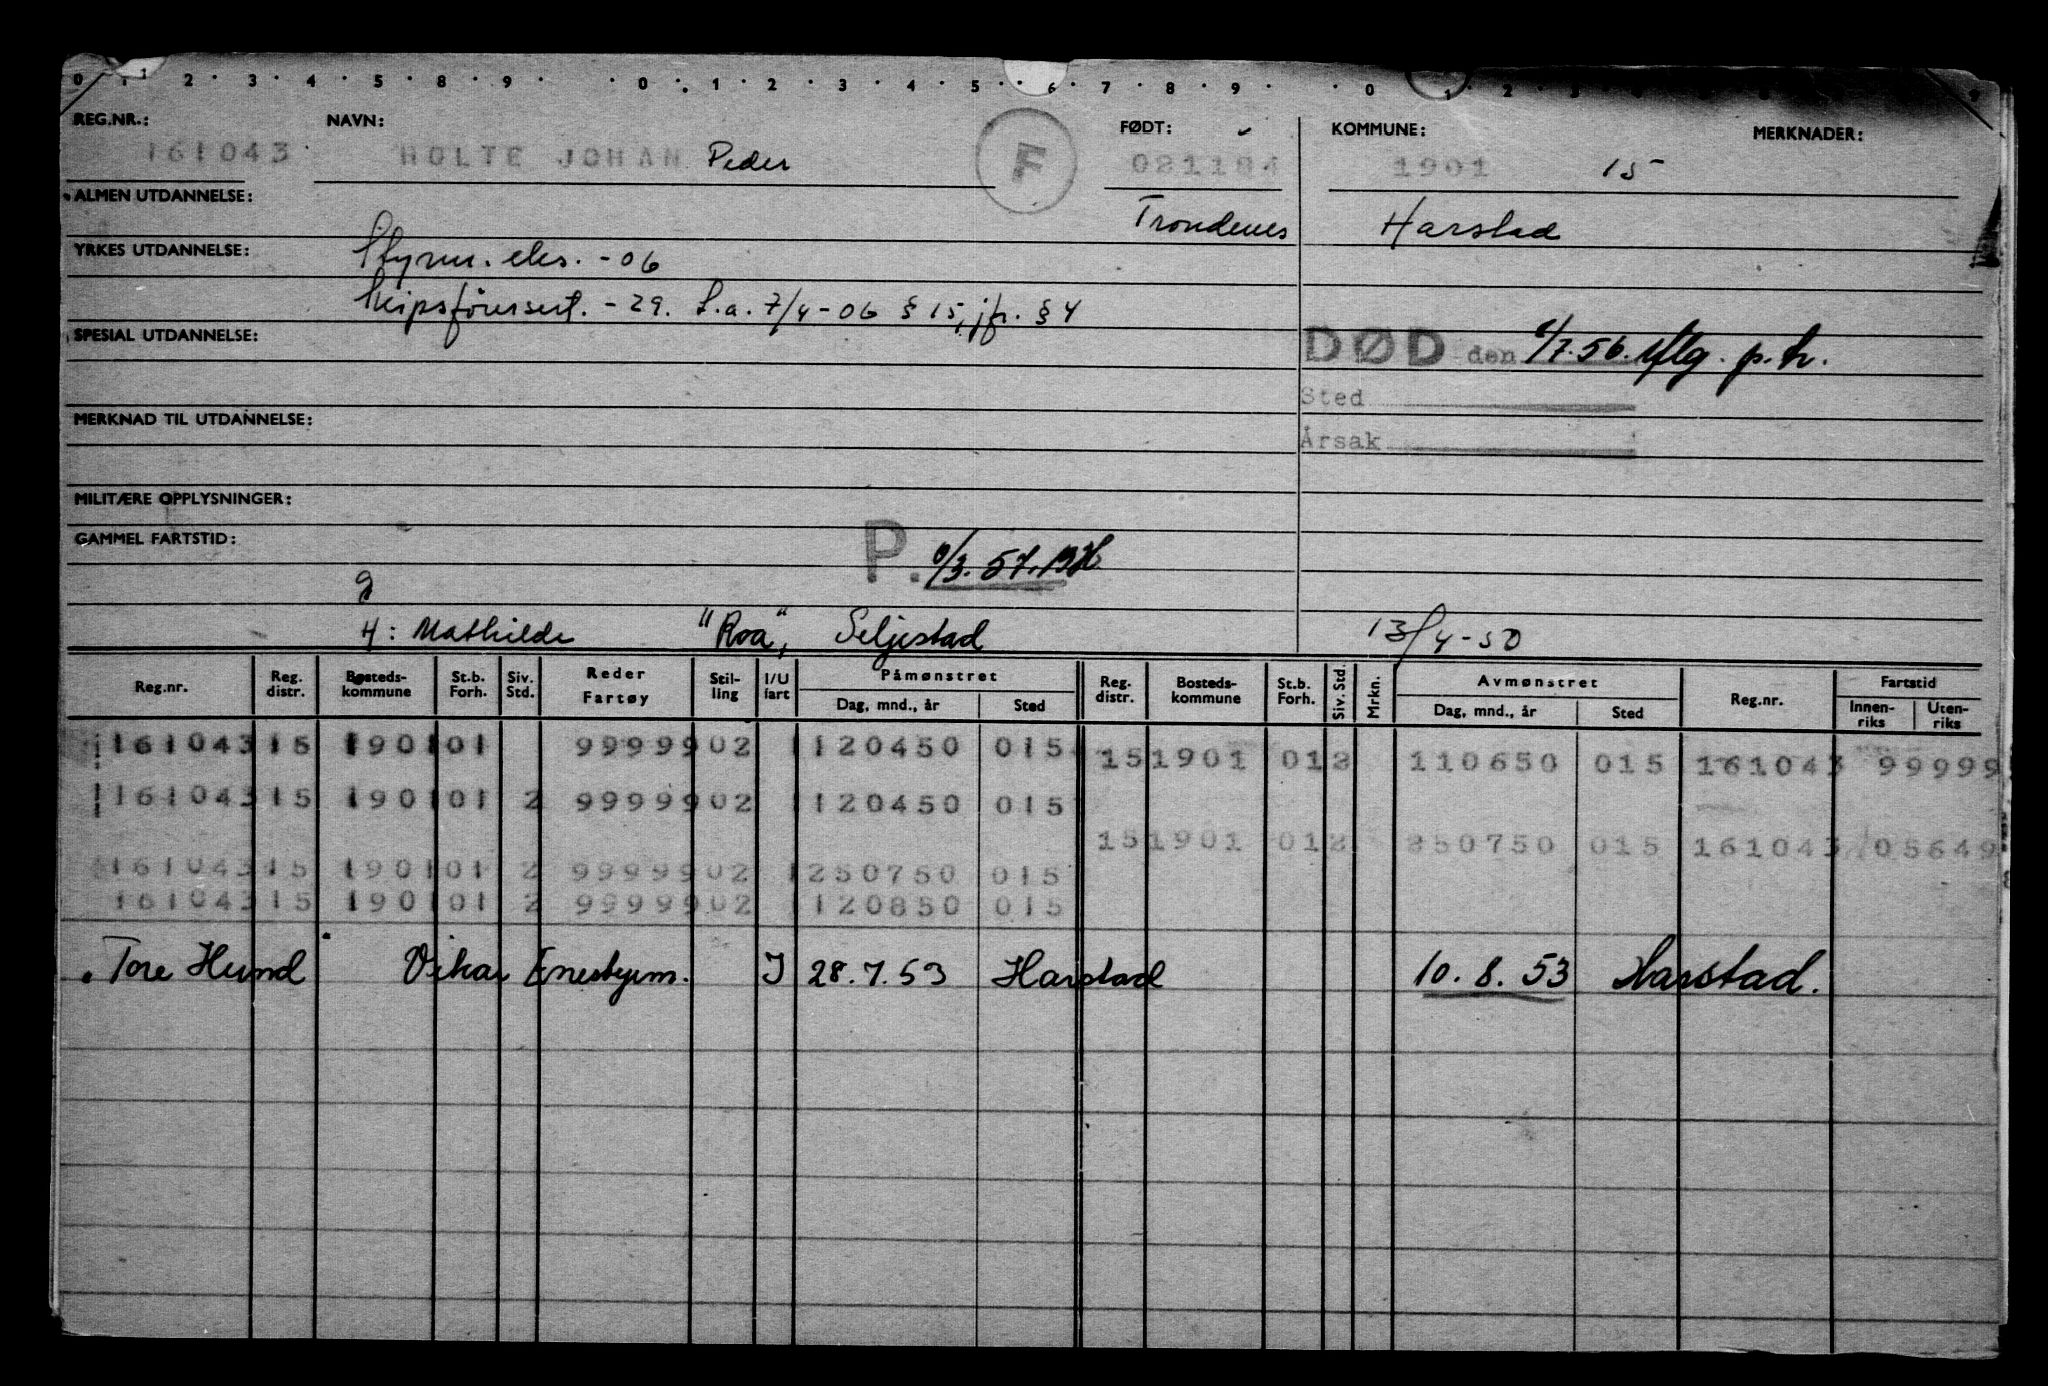 0 · 1 · 2 · 3 · 4 · 5 · 8 · 9 · · 0 · 1 · 2 · 3 · 4 · 5 · 6 · 7 · 8 · 9 · · 0 · 1 · 2 · 3
REG.NR.: NAVN: FØDT: KOMMUNE: MERKNADER:
161043 HOLTE JOHAN Peder F 081184 1901 15
ALMEN UTDANNELSE: Trondenes Harstad
YRKES UTDANNELSE: Styrm. eks. -06
Skipsførersert. -29. S.a. 7/4-06 § 15, jfr. § 4
SPESIAL UTDANNELSE: DØD den 6/7.56. iflg. p.k.
Sted
MERKNAD TIL UTDANNELSE:
Årsak
MILITÆRE OPPLYSNINGER:
GAMMEL FARTSTID: P. 9/3.57.
g
H: Mathilde "Roa", Seljestad 13/4-50
Reg.nr. Reg. distr. Bosteds-kommune St.b. Forh. Siv. Std. Reder Fartøy Stil-ling I/U fart Påmønstret Dag, mnd., år Sted Reg. distr. Bosteds-kommune St.b. Forh. Siv. Std. Mrkn. Avmønstret Dag, mnd., år Sted Reg.nr. Fartstid Innen-riks Uten-riks
161043 15 1901 01 99999 02 1 120450 015 15 1901 01 2 110650 015 161043 99999
161043 15 1901 01 2 99999 02 1 120450 015
15 1901 01 2 250750 015 161043 05649
161043 15 1901 01 2 99999 02 1 250750 015
161043 15 1901 01 2 99999 02 1 120850 015
Tore Hund Vikar Enestyrm. I 28.7.53 Harstad 10.8.53 Harstad.